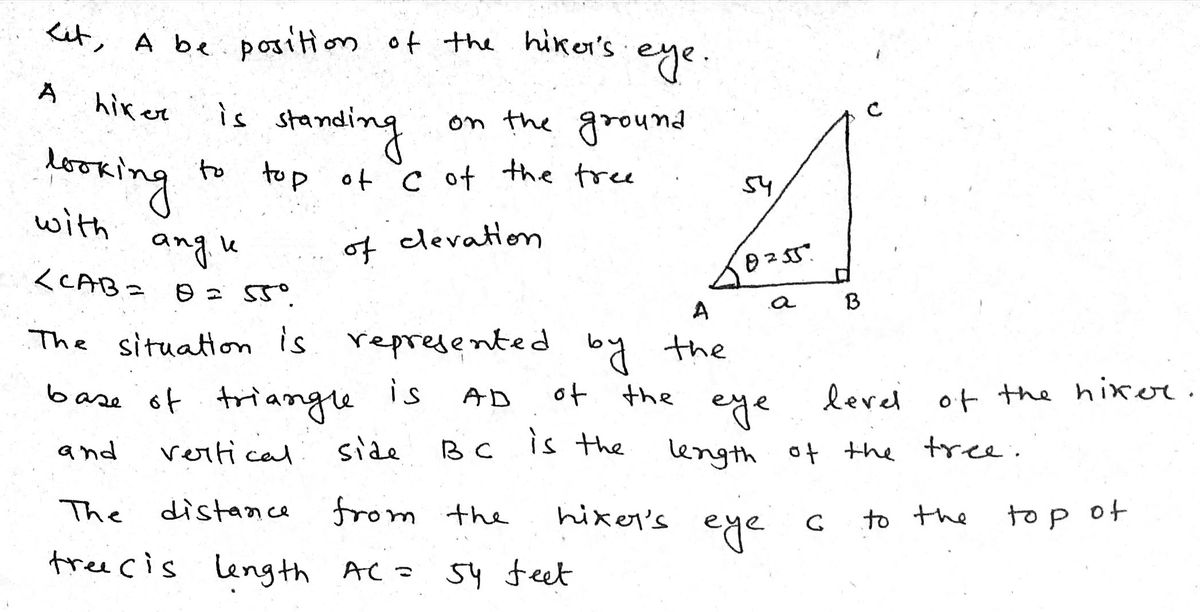 Let, A be position of the hiker's eye.
A hiker is standing on the ground
looking to top of C of the tree
with angle of elevation
<CAB = θ = 55°.
C
54
θ = 55°.
A a B
The situation is represented by the
base of triangle is AD of the eye level of the hiker.
and vertical side BC is the length of the tree.
The distance from the hiker's eye C to the top of
tree C is length AC = 54 feet